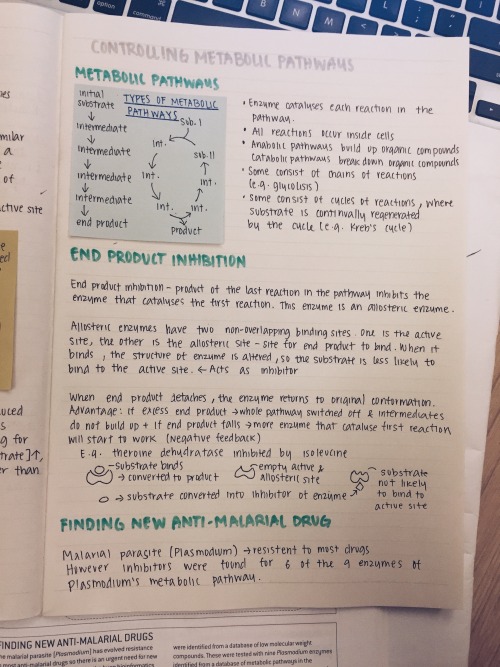 option
command
CONTROLLING METABOLIC PATHWAYS
METABOLIC PATHWAYS
TYPES OF METABOLIC
PATHWAYS
initial
substrate
intermediate
intermediate
intermediate
intermediate
end product
Sub. I
Int.
Int.
Int.
Int.
Int.
Sub. II
product
• Enzyme catalyses each reaction in the
pathway.
• All reactions occur inside cells
• Anabolic pathways build up organic compounds
Catabolic pathways break down organic compounds
• Some consist of chains of reactions
(e.g. glycolisis)
• Some consist of cycles of reactions, where
substrate is continually regenerated
by the cycle (e.g. Kreb's cycle)
END PRODUCT INHIBITION
End product inhibition - product of the last reaction in the pathway inhibits the
enzyme that catalyses the first reaction. This enzyme is an allosteric enzyme.
Allosteric enzymes have two non-overlapping binding sites. One is the active
site, the other is the allosteric site - site for end product to bind. When it
binds, the structure of enzyme is altered, so the substrate is less likely to
bind to the active site. ← Acts as inhibitor
When end product detaches, the enzyme returns to original conformation.
Advantage: if excess end product → whole pathway switched off & intermediates
do not build up + if end product falls → more enzyme that catalyse first reaction
will start to work (negative feedback)
E.g. theroine dehydratase inhibited by isoleucine
substrate binds
→ converted to product
empty active &
allosteric site
substrate
not likely
to bind to
active site
→ substrate converted into inhibitor of enzyme
FINDING NEW ANTI-MALARIAL DRUG
Malarial parasite (Plasmodium) → resistent to most drugs
However inhibitors were found for 6 of the 9 enzymes of
Plasmodium's metabolic pathway.
milar
a
of
active site
uced
s
g for
trate]↑,
er than
FINDING NEW ANTI-MALARIAL DRUGS
malarial parasite [Plasmodium] has evolved resistance
most anti-malarial drugs so there is an urgent need for new
were identified from a database of low molecular weight
compounds. These were tested with nine Plasmodium enzymes
identified from a database of metabolic pathways in the